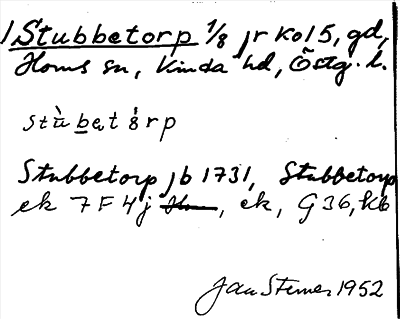 1 Stubbetorp 1/8 jr ko15, gd,
Horns sn, Kinda hd, Östg. l.
stùbətȯrp
Stubbetorp jb 1731, Stubbetorp
ek 7F4j, ek, G36, kb
Jan Stemer 1952